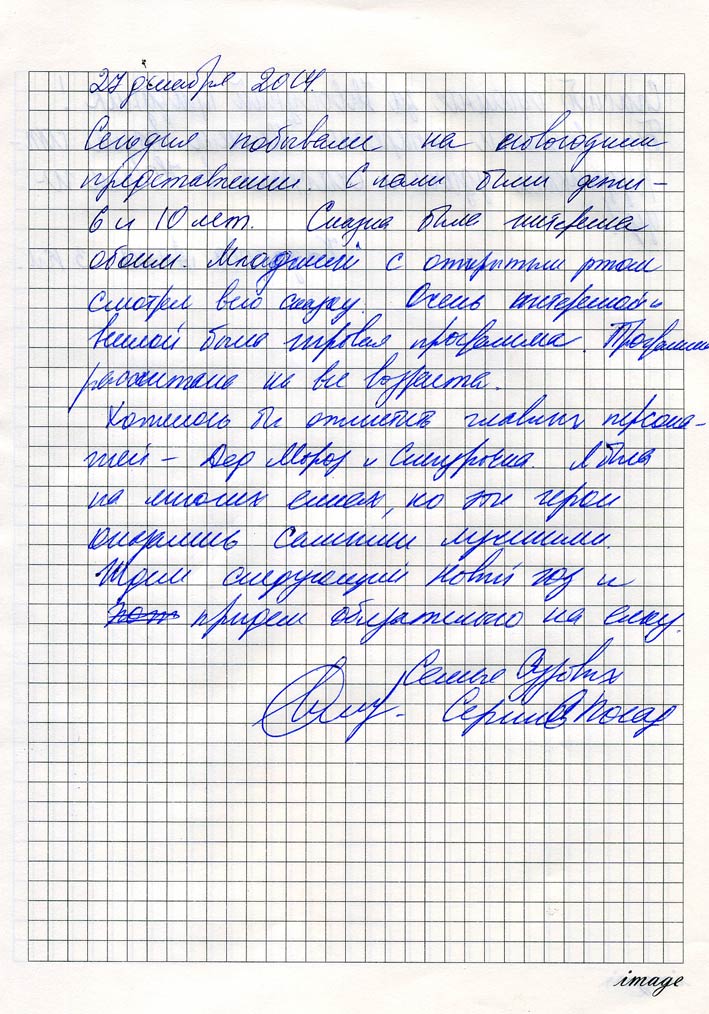 27 декабря 2014.
Сегодня побывали на новогоднем
представлении. С нами были дети –
6 и 10 лет. Сказка была интересна
обоим. Младший с открытым ртом
смотрел всю сказку. Очень интересной и
веселой была игровая программа. Программа
рассчитана на все возраста.
Хотелось бы отметить главных персона-
жей – Дед Мороз и Снегурочка. Я была
на многих елках, но эти герои
оказались самыми лучшими.
Ждем следующий Новый год и
придем обязательно на елку.
Семья
Сергиев Посад
image